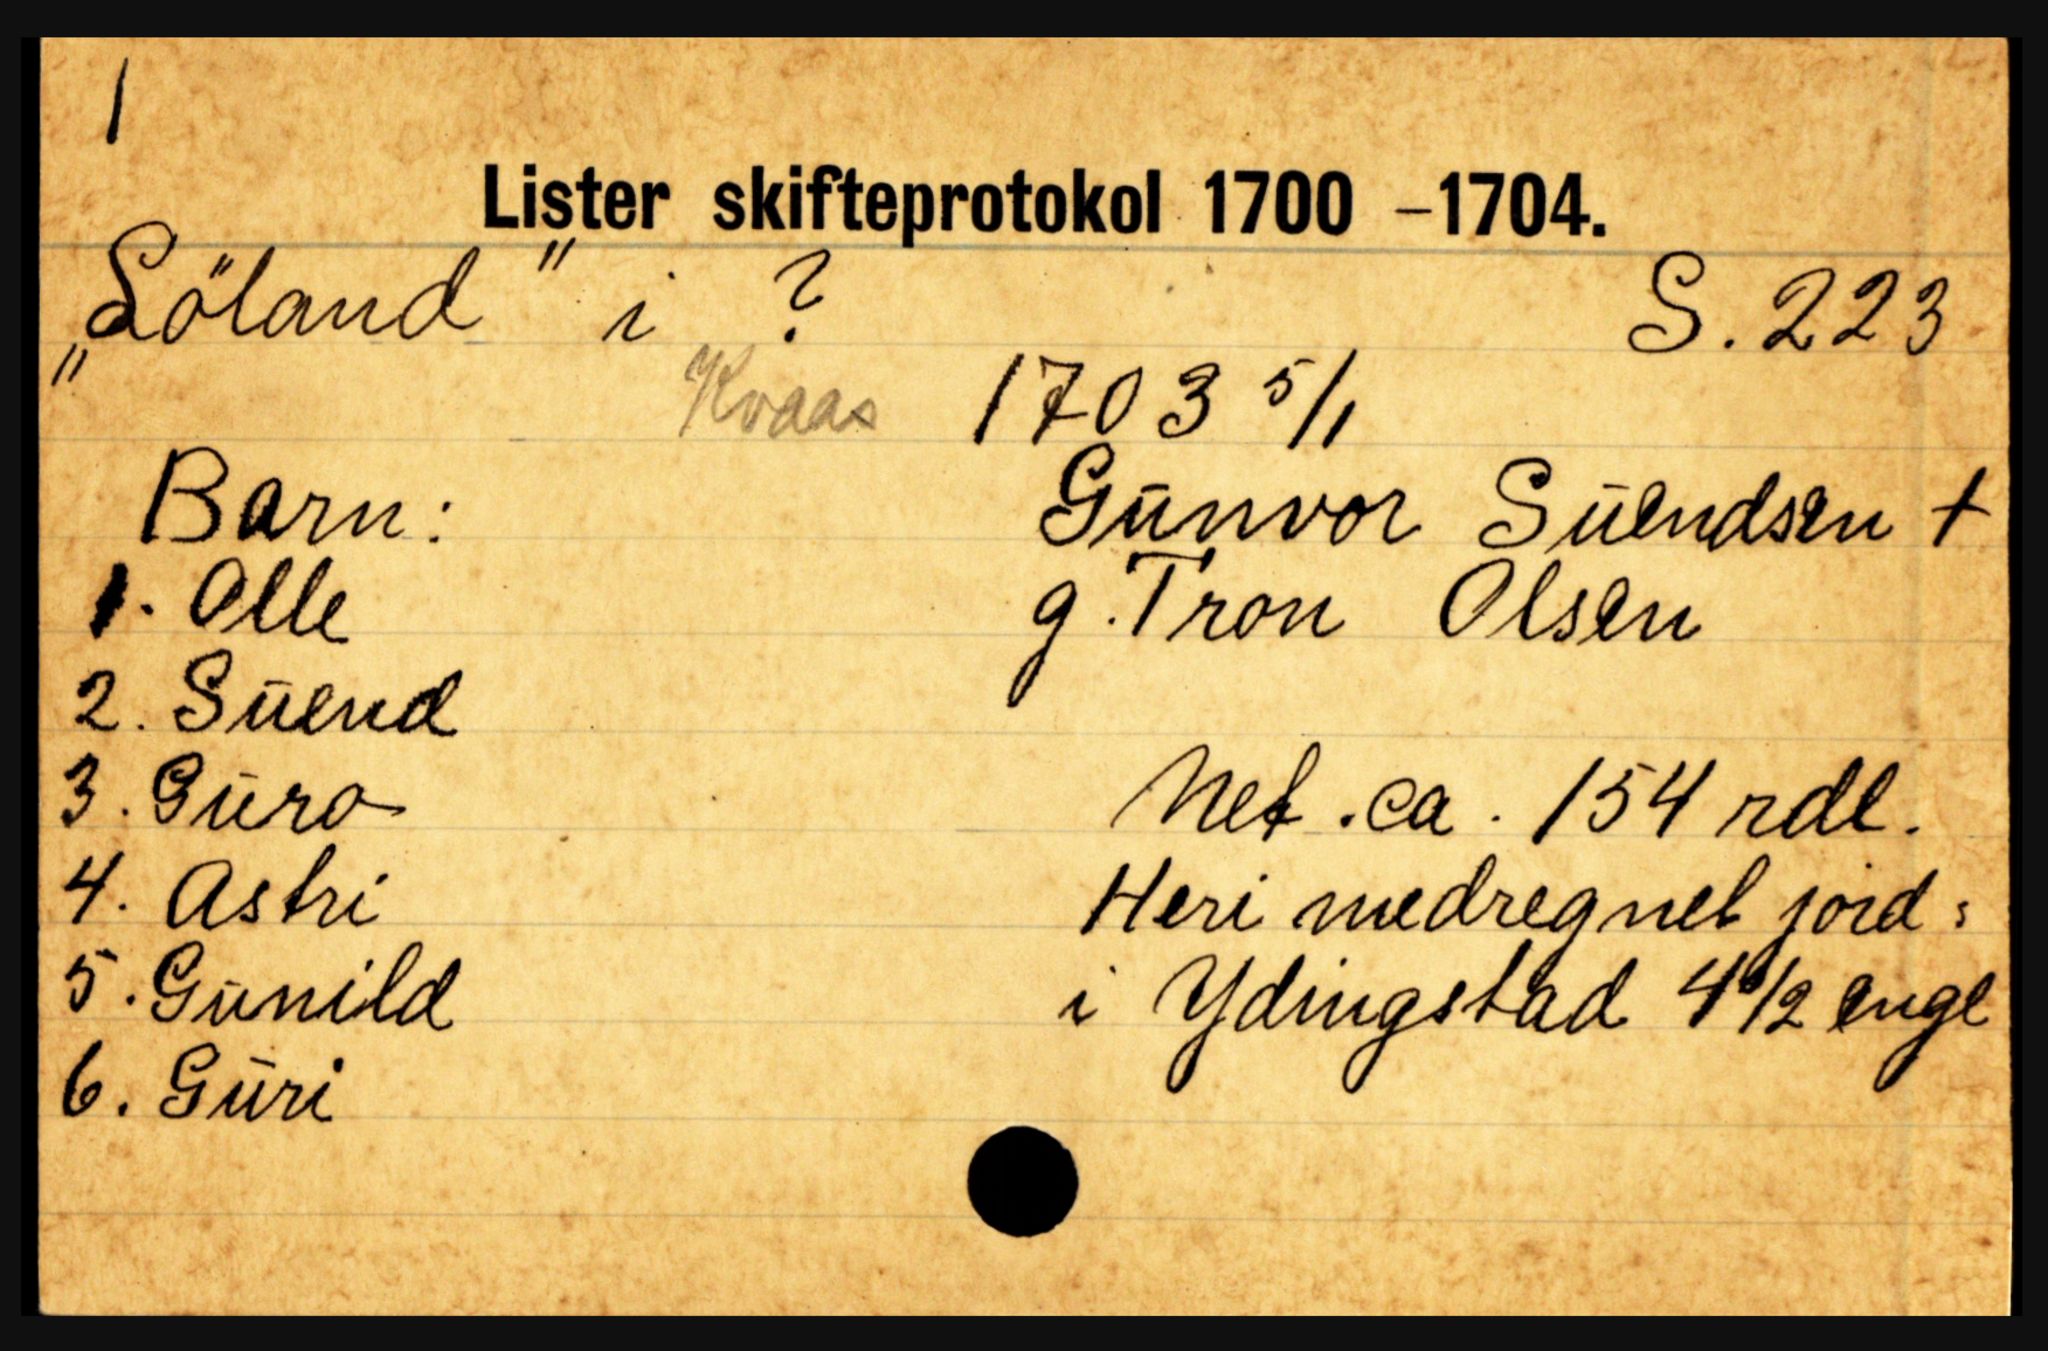 1
Lister skifteprotokol 1700 – 1704.
„Löland" i ? S. 223
Kvaas 1703 5/1
Barn: Gūnvor Sūendsen +
1. Olle g. Tron Olsen
2. Sūend
3. Gūro Net. ca. 154 rdl.
4. Astri Heri medregnet jord:
5. Gūnild i Ydingstad 4 1/2 engl
6. Gūri